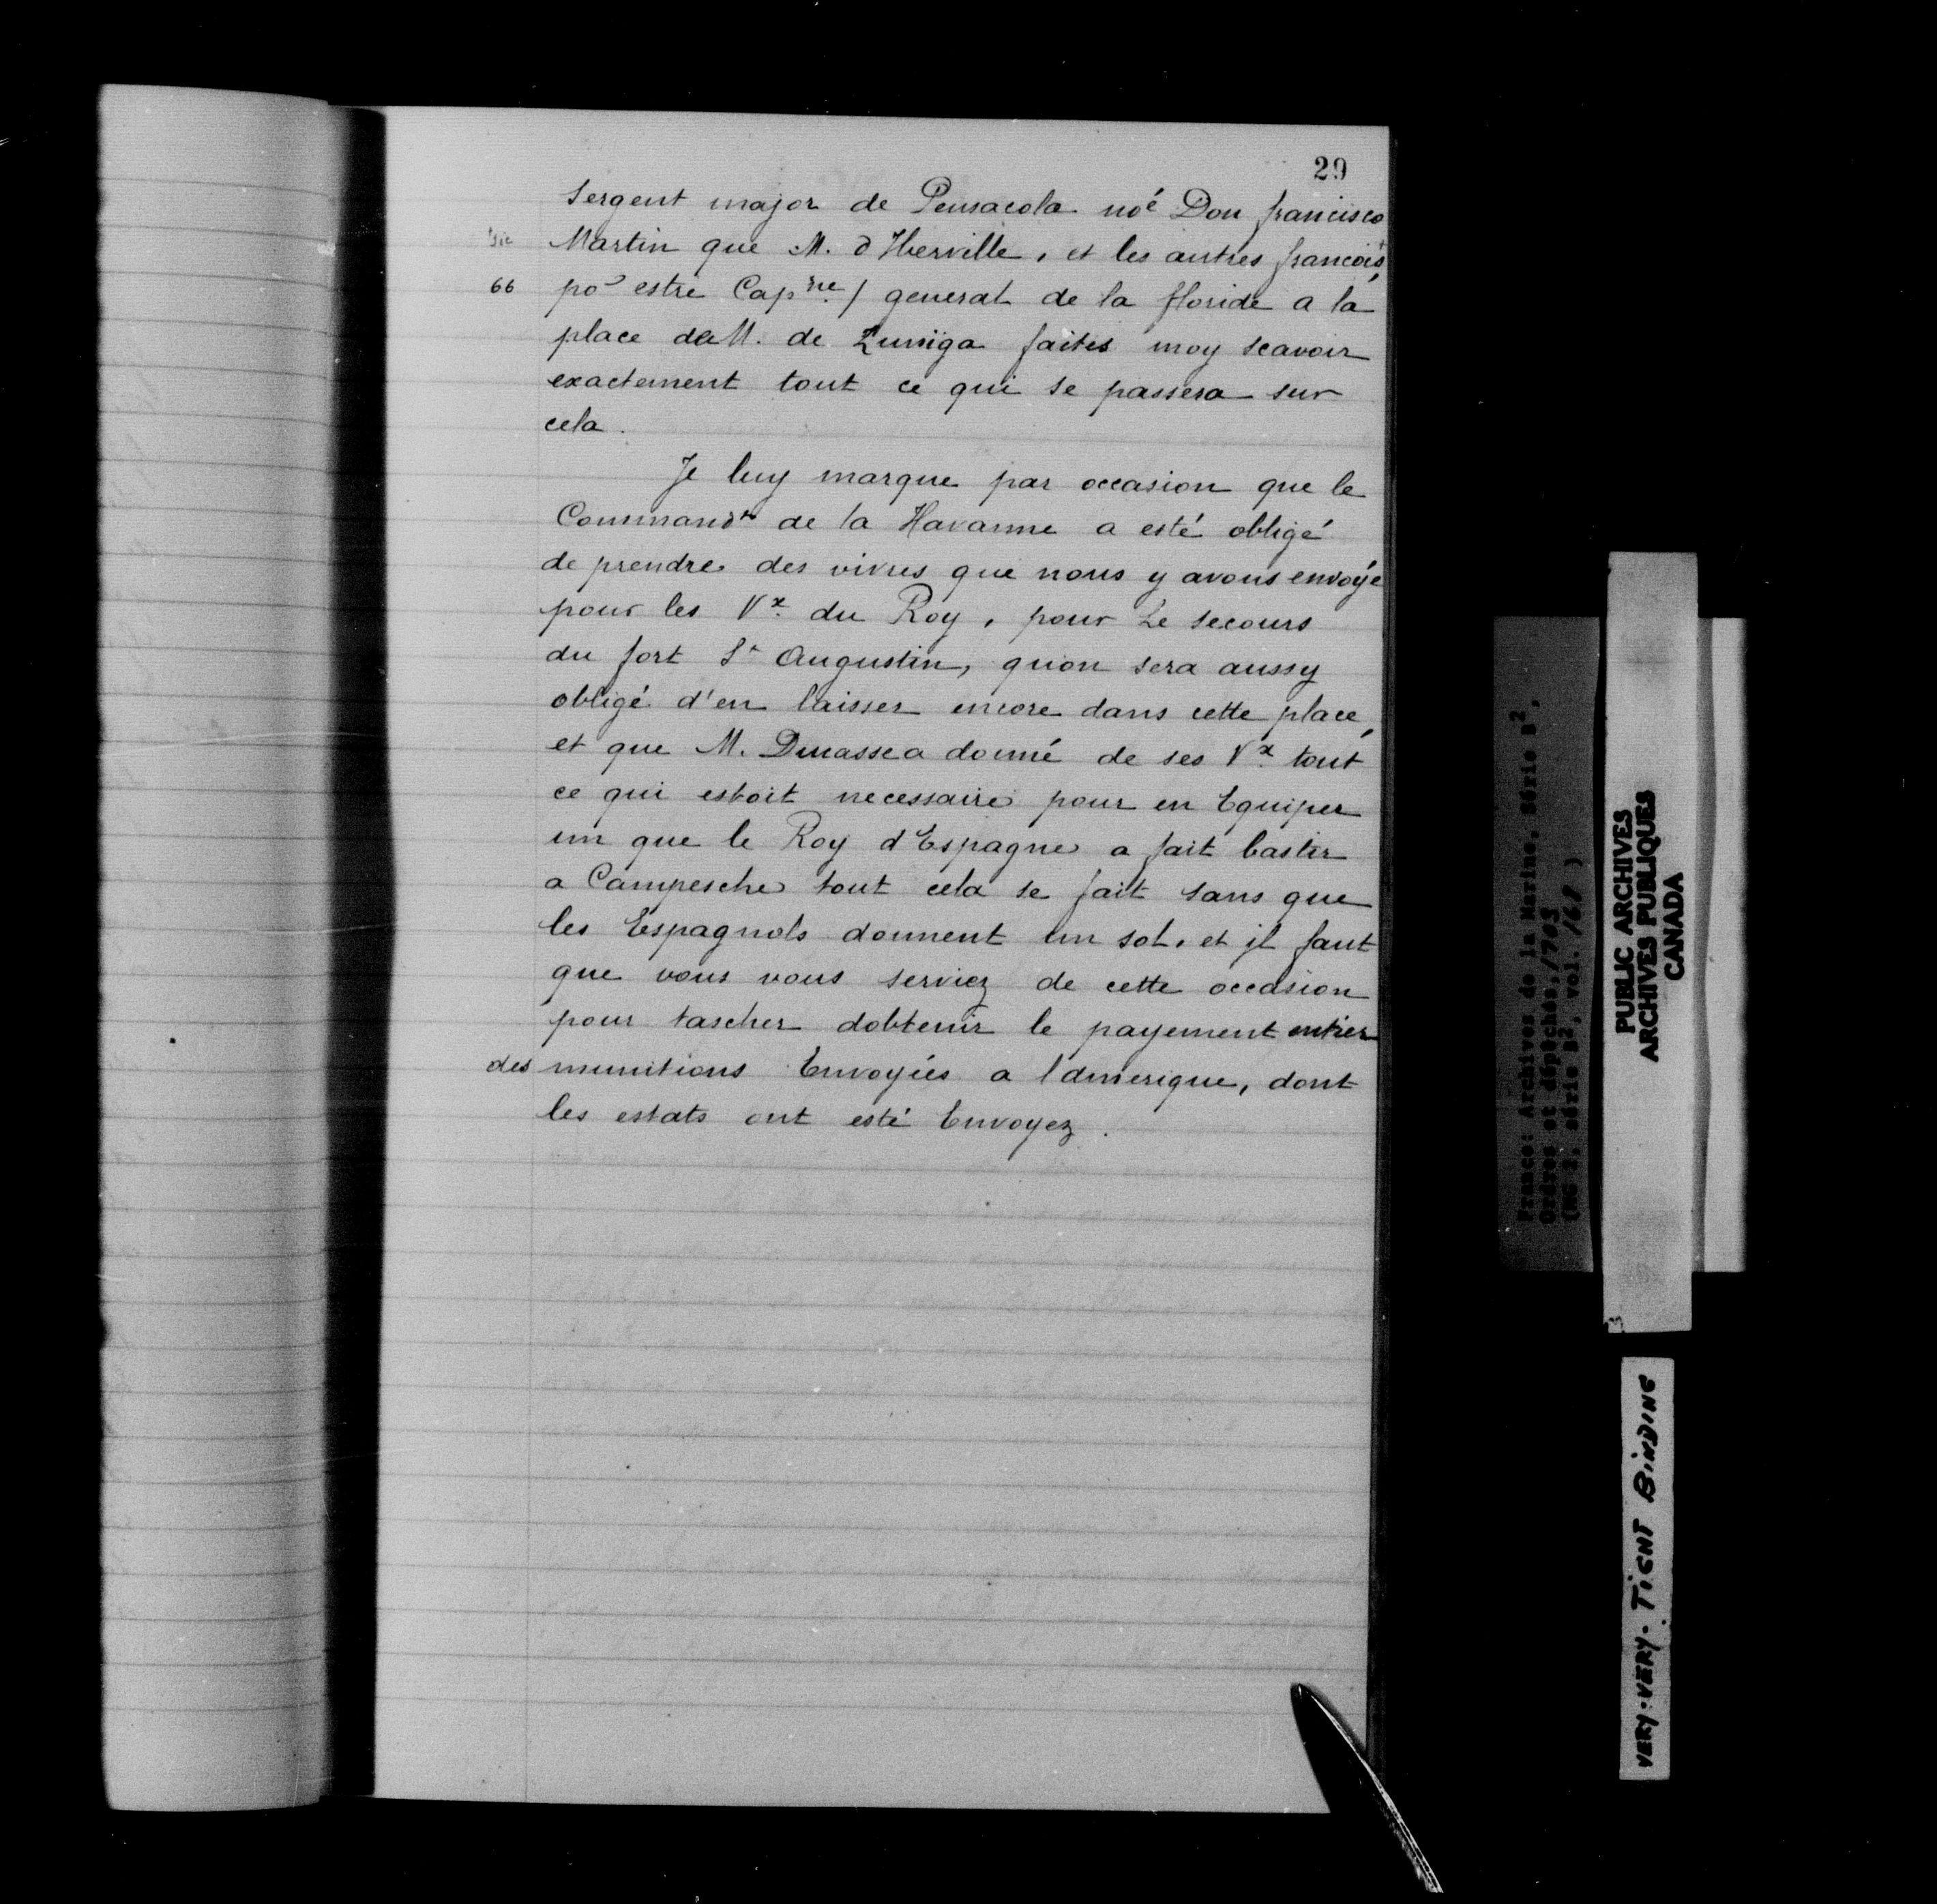 29
Sergent major de Pensacola no͠é Don francisco
sic Martin que M. d'Iberville, et les autres francois,
66 po͠ estre Cap.ne / general de la floride a la
place de M. de Zuniga faites moy scavoir
exactement tout ce qui se passera sur
cela.
Je luy marque par occasion que le
Commandt de la Havanne a esté obligé
de prendre des vivres que nous y avons envoyé
pour les Vx. du Roy, pour Le secours
du fort St Augustin, quon sera aussy
obligé d'en laisser encore dans cette place,
et que M. Ducasse a donné de ses Vx. tout
ce qui estoit necessaire pour en Equiper
un que le Roy d'Espagne a fait bastir
a Campesche tout cela se fait sans que
les Espagnols donnent un sol, et il faut
que vous vous serviez de cette occasion
pour tascher dobtenir le payement entier
des munitions Envoyées a lamerique, dont
les estats ont esté Envoyez.
France: Archives de la Marine, Série B2,
Ordres et dépêches, 1703
(MG 2, série B2, vol. 168)
PUBLIC ARCHIVES
ARCHIVES PUBLIQUES
CANADA
VERY-VERY-TIGHT BINDING